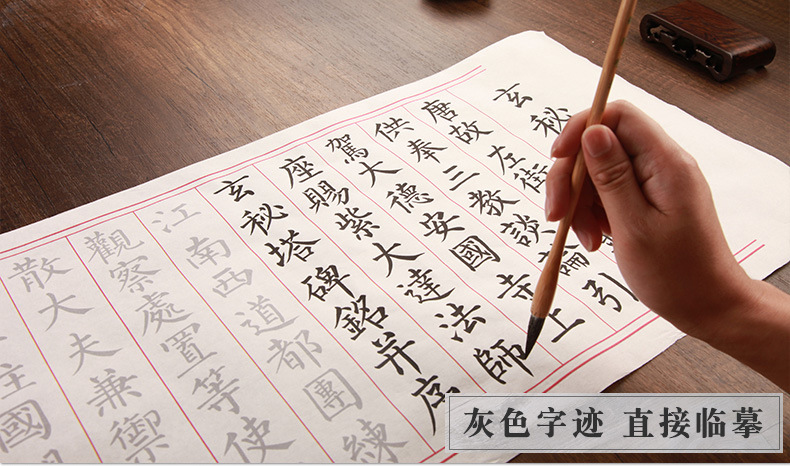 玄秘
唐故左街
供奉三教談論引
駕大德安國寺上
座賜紫大達法師
玄秘塔碑銘并序
江南西道都團練
觀察處置等使
散大夫兼御
國
灰色字迹 直接临摹